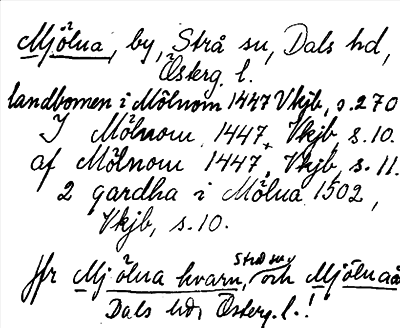 Mjölna, by, Strå sn, Dals hd,
Österg. l.
landbomen i Mölnom 1447 Vkjb, s. 270
I Mölnom 1447, Vkjb, s. 10.
af Mölnom 1447, Vkjb, s. 11.
2 gardha i Mølna 1502,
Vkjb, s. 10.
Jfr Mjölna kvarn, Strå sn, och Mjölnaå
Dals hd, Österg. l.!